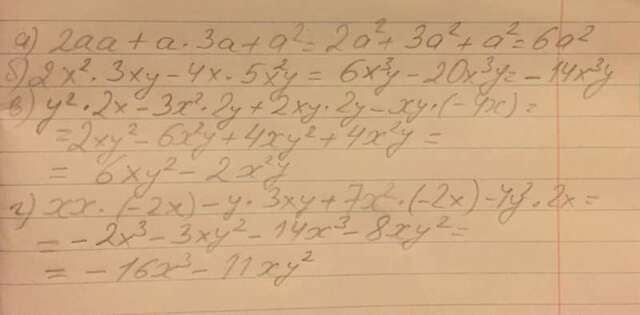 а) 2aa + a · 3a + a² = 2a² + 3a² + a² = 6a²
б) 2x² · 3xy - 4x · 5x²y = 6x³y - 20x³y = -14x³y
в) y² · 2x - 3x² · 2y + 2xy · 2y - xy · (-4x) =
= 2xy² - 6x²y + 4xy² + 4x²y =
= 6xy² - 2x²y
г) xx · (-2x) - y · 3xy + 7x² · (-2x) - 4y² · 2x =
= -2x³ - 3xy² - 14x³ - 8xy² =
= -16x³ - 11xy²